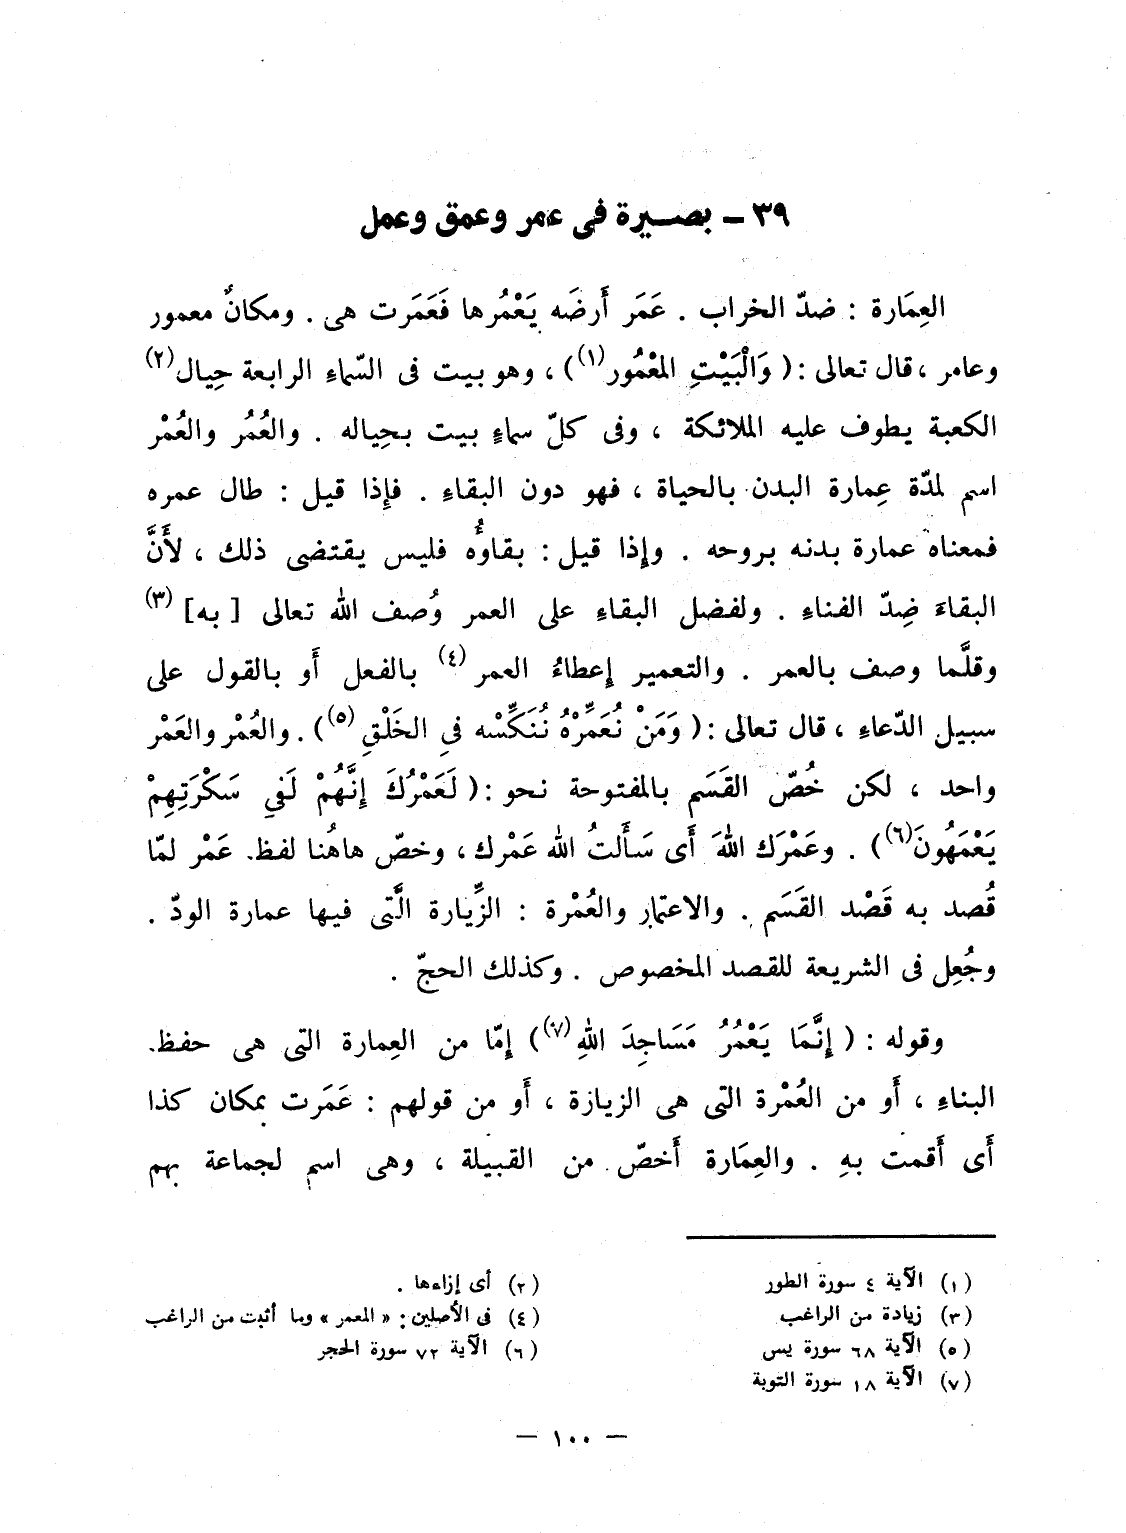 ٣٩ – بصيرة فى عمر وعمق وعمل
العِمَارة : ضدّ الخراب . عَمَر أَرضَه يَعْمُرها فَعَمَرت هى . ومكانٌ معمور
وعامر ، قال تعالى : ( وَالْبَيْتِ المَعْمُور (١) ) ، وهو بيت فى السّماءِ الرابعة حِيال (٢)
الكعبة يطوف عليه الملائكة ، وفى كلّ سماءٍ بيت بحِياله . والعُمُر والعُمْر
اسم لمدّة عِمارة البدن بالحياة ، فهو دون البقاءِ . فإِذا قيل : طال عمره
فمعناه عمارة بدنه بروحه . وإِذا قيل : بقاوُّه فليس يقتضى ذلك ، لأَنَّ
البقاءَ ضِدّ الفناءِ . ولفضل البقاءِ على العمر وُصف الله تعالى [ به ] (٣)
وقلَّما وصف بالعمر . والتعمير إِعطاءُ العمر (٤) بالفعل أَو بالقول على
سبيل الدّعاءِ ، قال تعالى : ( وَمَنْ نُعَمِّرْهُ نُنَكِّسْه فىِ الخَلْقِ (٥) ) . والعُمْر والعَمْر
واحد ، لكن خُصّ القَسَم بالمفتوحة نحو : ( لَعَمْرُكَ إِنَّهُمْ لَفىِ سَكْرَتِهِمْ
يَعْمَهُونَ (٦) ) . وعَمْرَك اللهَ أَى سَأَلتُ الله عَمْرك ، وخصّ هاهُنا لفظ عَمْر لمّا
قُصد به قَصْد القَسَم . والاعتمار والعُمْرة : الزِّيارة الَّتى فيها عمارة الودّ .
وجُعِل فى الشريعة للقصد المخصوص . وكذلك الحجّ .
وقوله : ( إِنَّمَا يَعْمُرُ مَسَاجِدَ اللهِ (٧) ) إِمّا من العِمارة التى هى حفظ
البناءِ ، أَو من العُمْرة التى هى الزيازة ، أَو من قولهم : عَمَرت بمكان كذا
أَى أَقمت بهِ . والعِمَارة أَخصّ من القبيلة ، وهى اسم لجماعة بهم
(١) الآية ٤ سورة الطور
(٢) أى إزاءها .
(٣) زيادة من الراغب
(٤) فى الأصلين : « المعمر » وما أثبت من الراغب
(٥) الآية ٦٨ سورة يس
(٦) الآية ٧٢ سورة الحجر
(٧) الآية ١٨ سورة التوبة
— ١٠٠ —